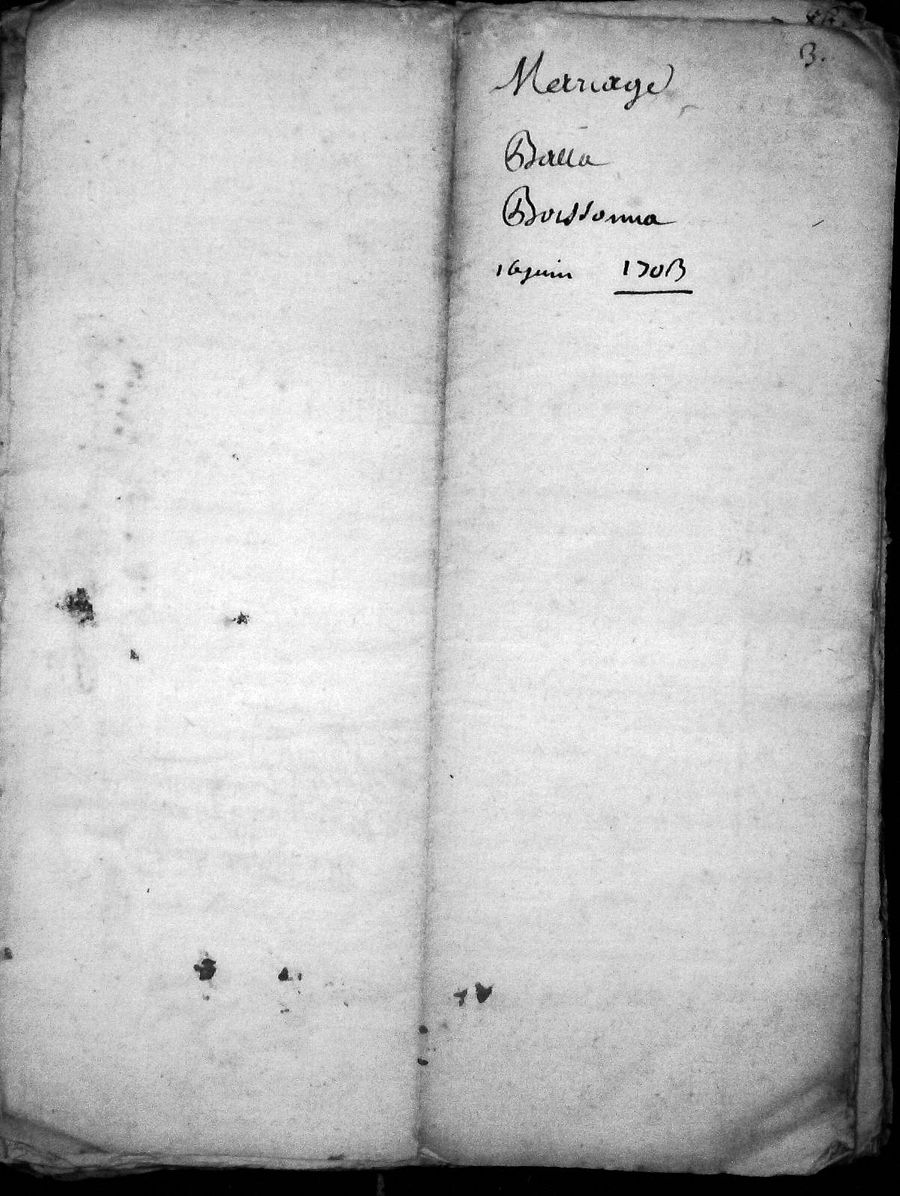 B.
Mariage
Balla
Boissonna
16 juin 1703